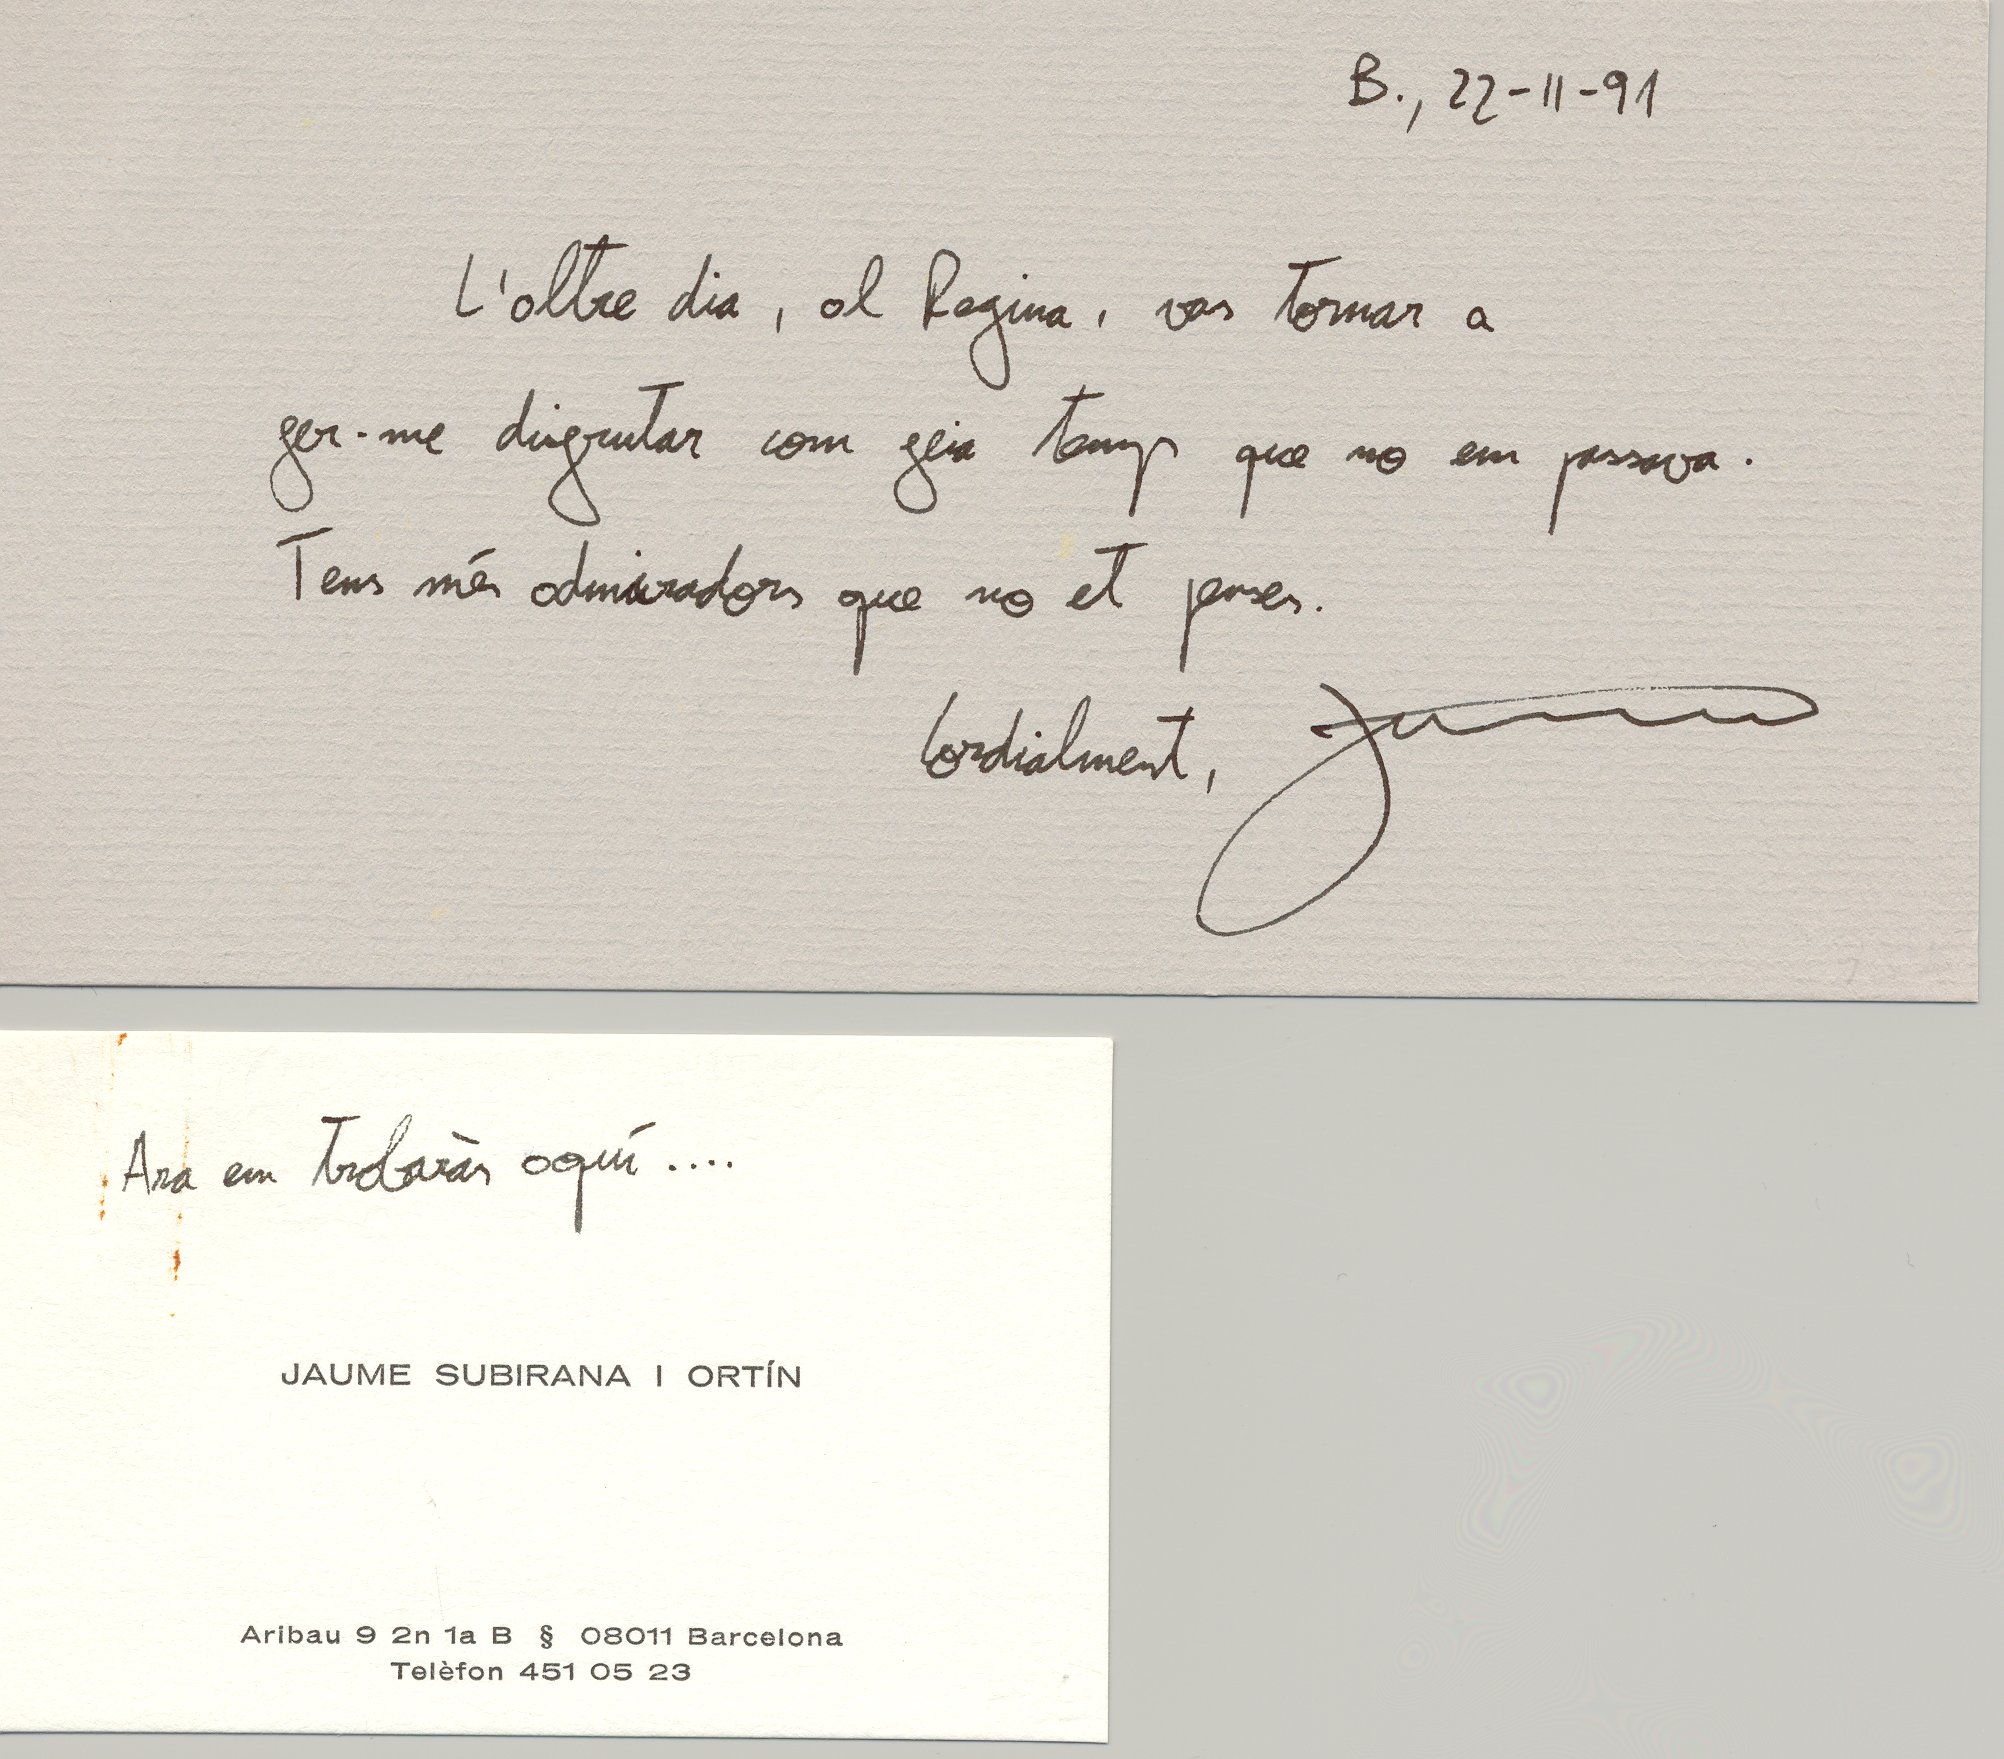 B., 22-11-91
L'altre dia, al Regina, vas tornar a
fer-me disfrutar com feia temps que no em passava.
Tens més admiradors que no et penses.
Cordialment,
Ara em trobaràs aquí....
JAUME SUBIRANA I ORTÍN
Aribau 9 2n 1a B § 08011 Barcelona
Telèfon 451 05 23